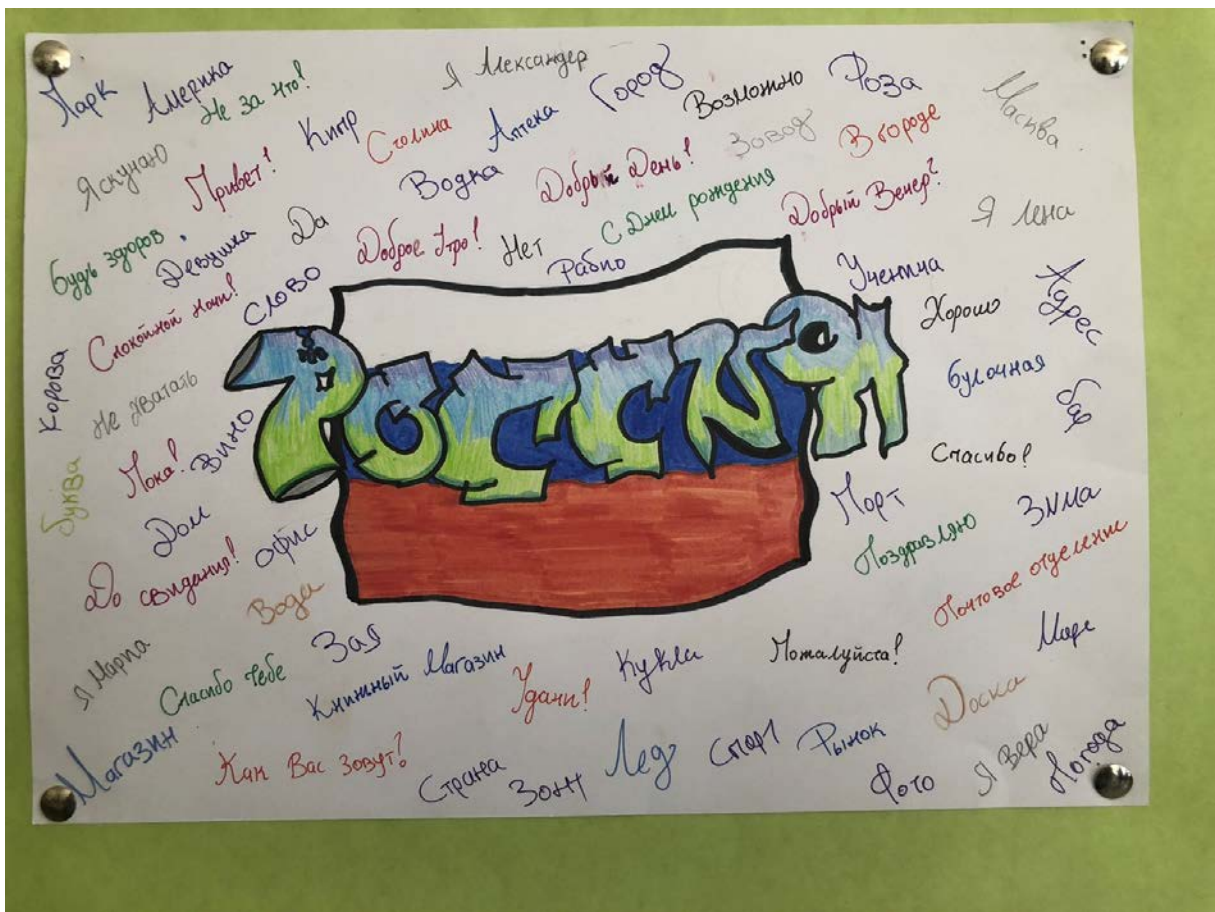 Парк
Америка
Не за что!
Я Александер
Город
Возможно
Роза
Масква
Яскучаю
Привет!
Кипр
Столица
Аптека
Водка
Добрый День!
Завод
В городе
Будь здоров
Девушка
Да
Доброе Утро!
Нет
С Днем рождения
Добрый Вечер?
Я Лена
Спокойной ночи!
Слово
Ученица
Хорошо
Адрес
РОССИЯ
Корова
Не хватать
Вино
булочная
Буква
Пока!
Спасибо!
Дом
офис
Порт
Зима
До свидания!
Вода
Поздравляю
Почтовое отделение
Я Марта
Спасибо тебе
Книжный Магазин
Удачи!
Кукла
Пожалуйста!
Доска
Магазин
Как Вас Зовут?
Страна
Лёд
Спорт
Рынок
Фото
Я Вера
Погода